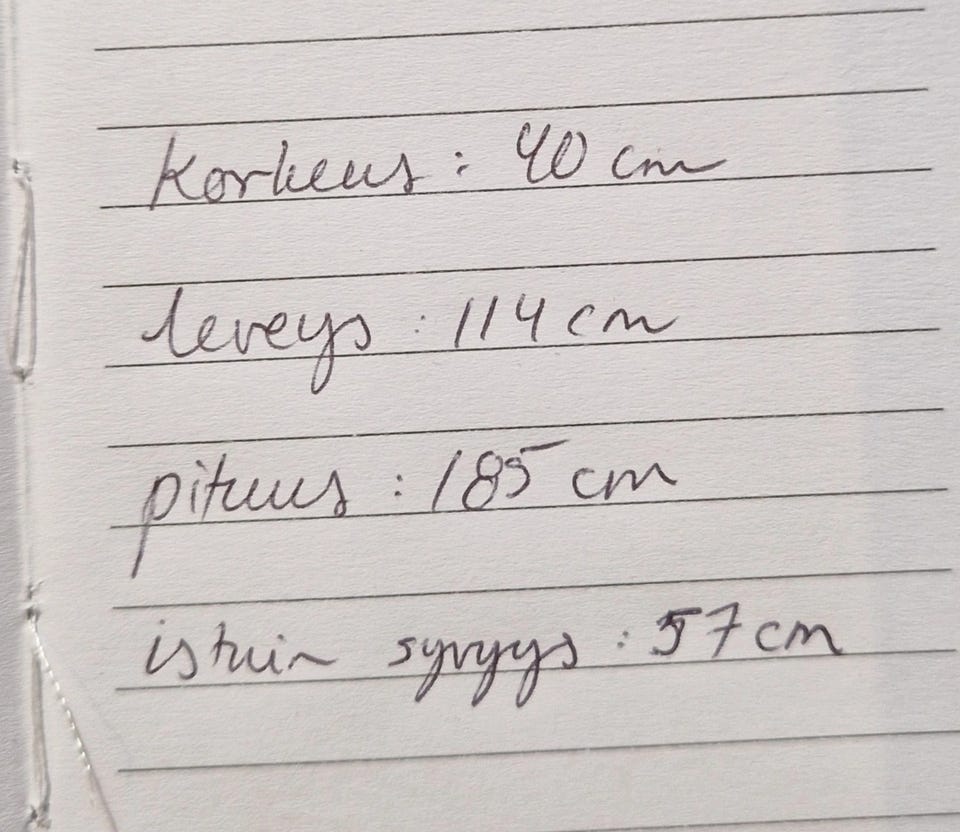 Korkeus : 40 cm
leveys : 114 cm
pituus : 185 cm
istuin syvyys : 57 cm